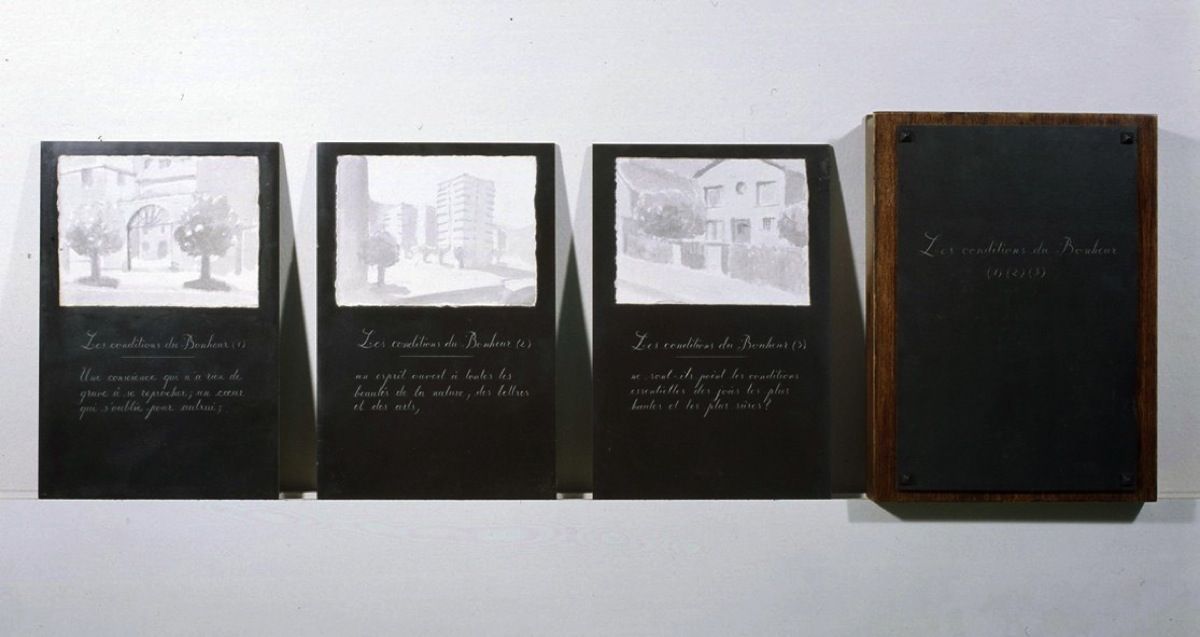 Les conditions du Bonheur (1)
Une conscience qui n'a rien de
grave à se reprocher; un cœur
qui s'oublie pour autrui;
Les conditions du Bonheur (2)
un esprit ouvert à toutes les
beautés de la nature, des lettres
et des arts,
Les conditions du Bonheur (3)
ne sont-ils point les conditions
essentielles des joies les plus
hautes et les plus sûres?
Les conditions du Bonheur
(1) (2) (3)